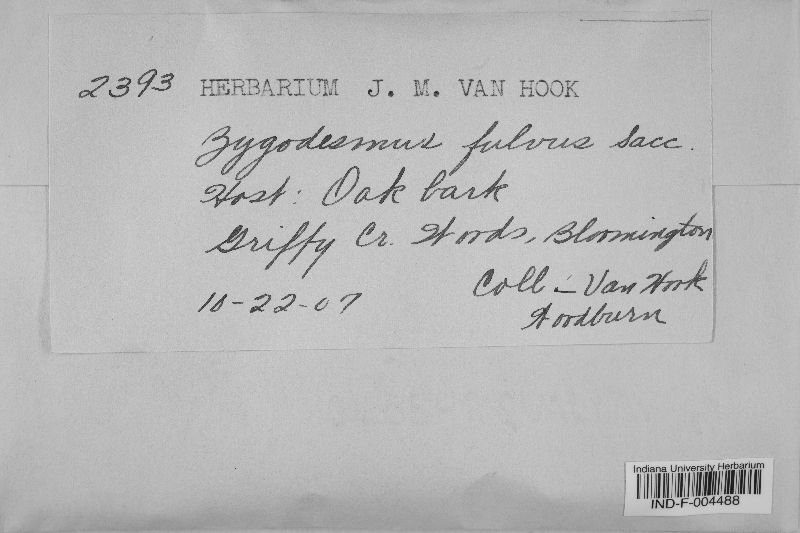 2393 HERBARIUM J. M. VAN HOOK
Zygodesmus fulvus Sacc.
Host: Oak bark
Griffy Cr. Woods, Bloomington
Coll – Van Hook
10-22-07
Woodburn
Indiana University Herbarium
IND-F-004488